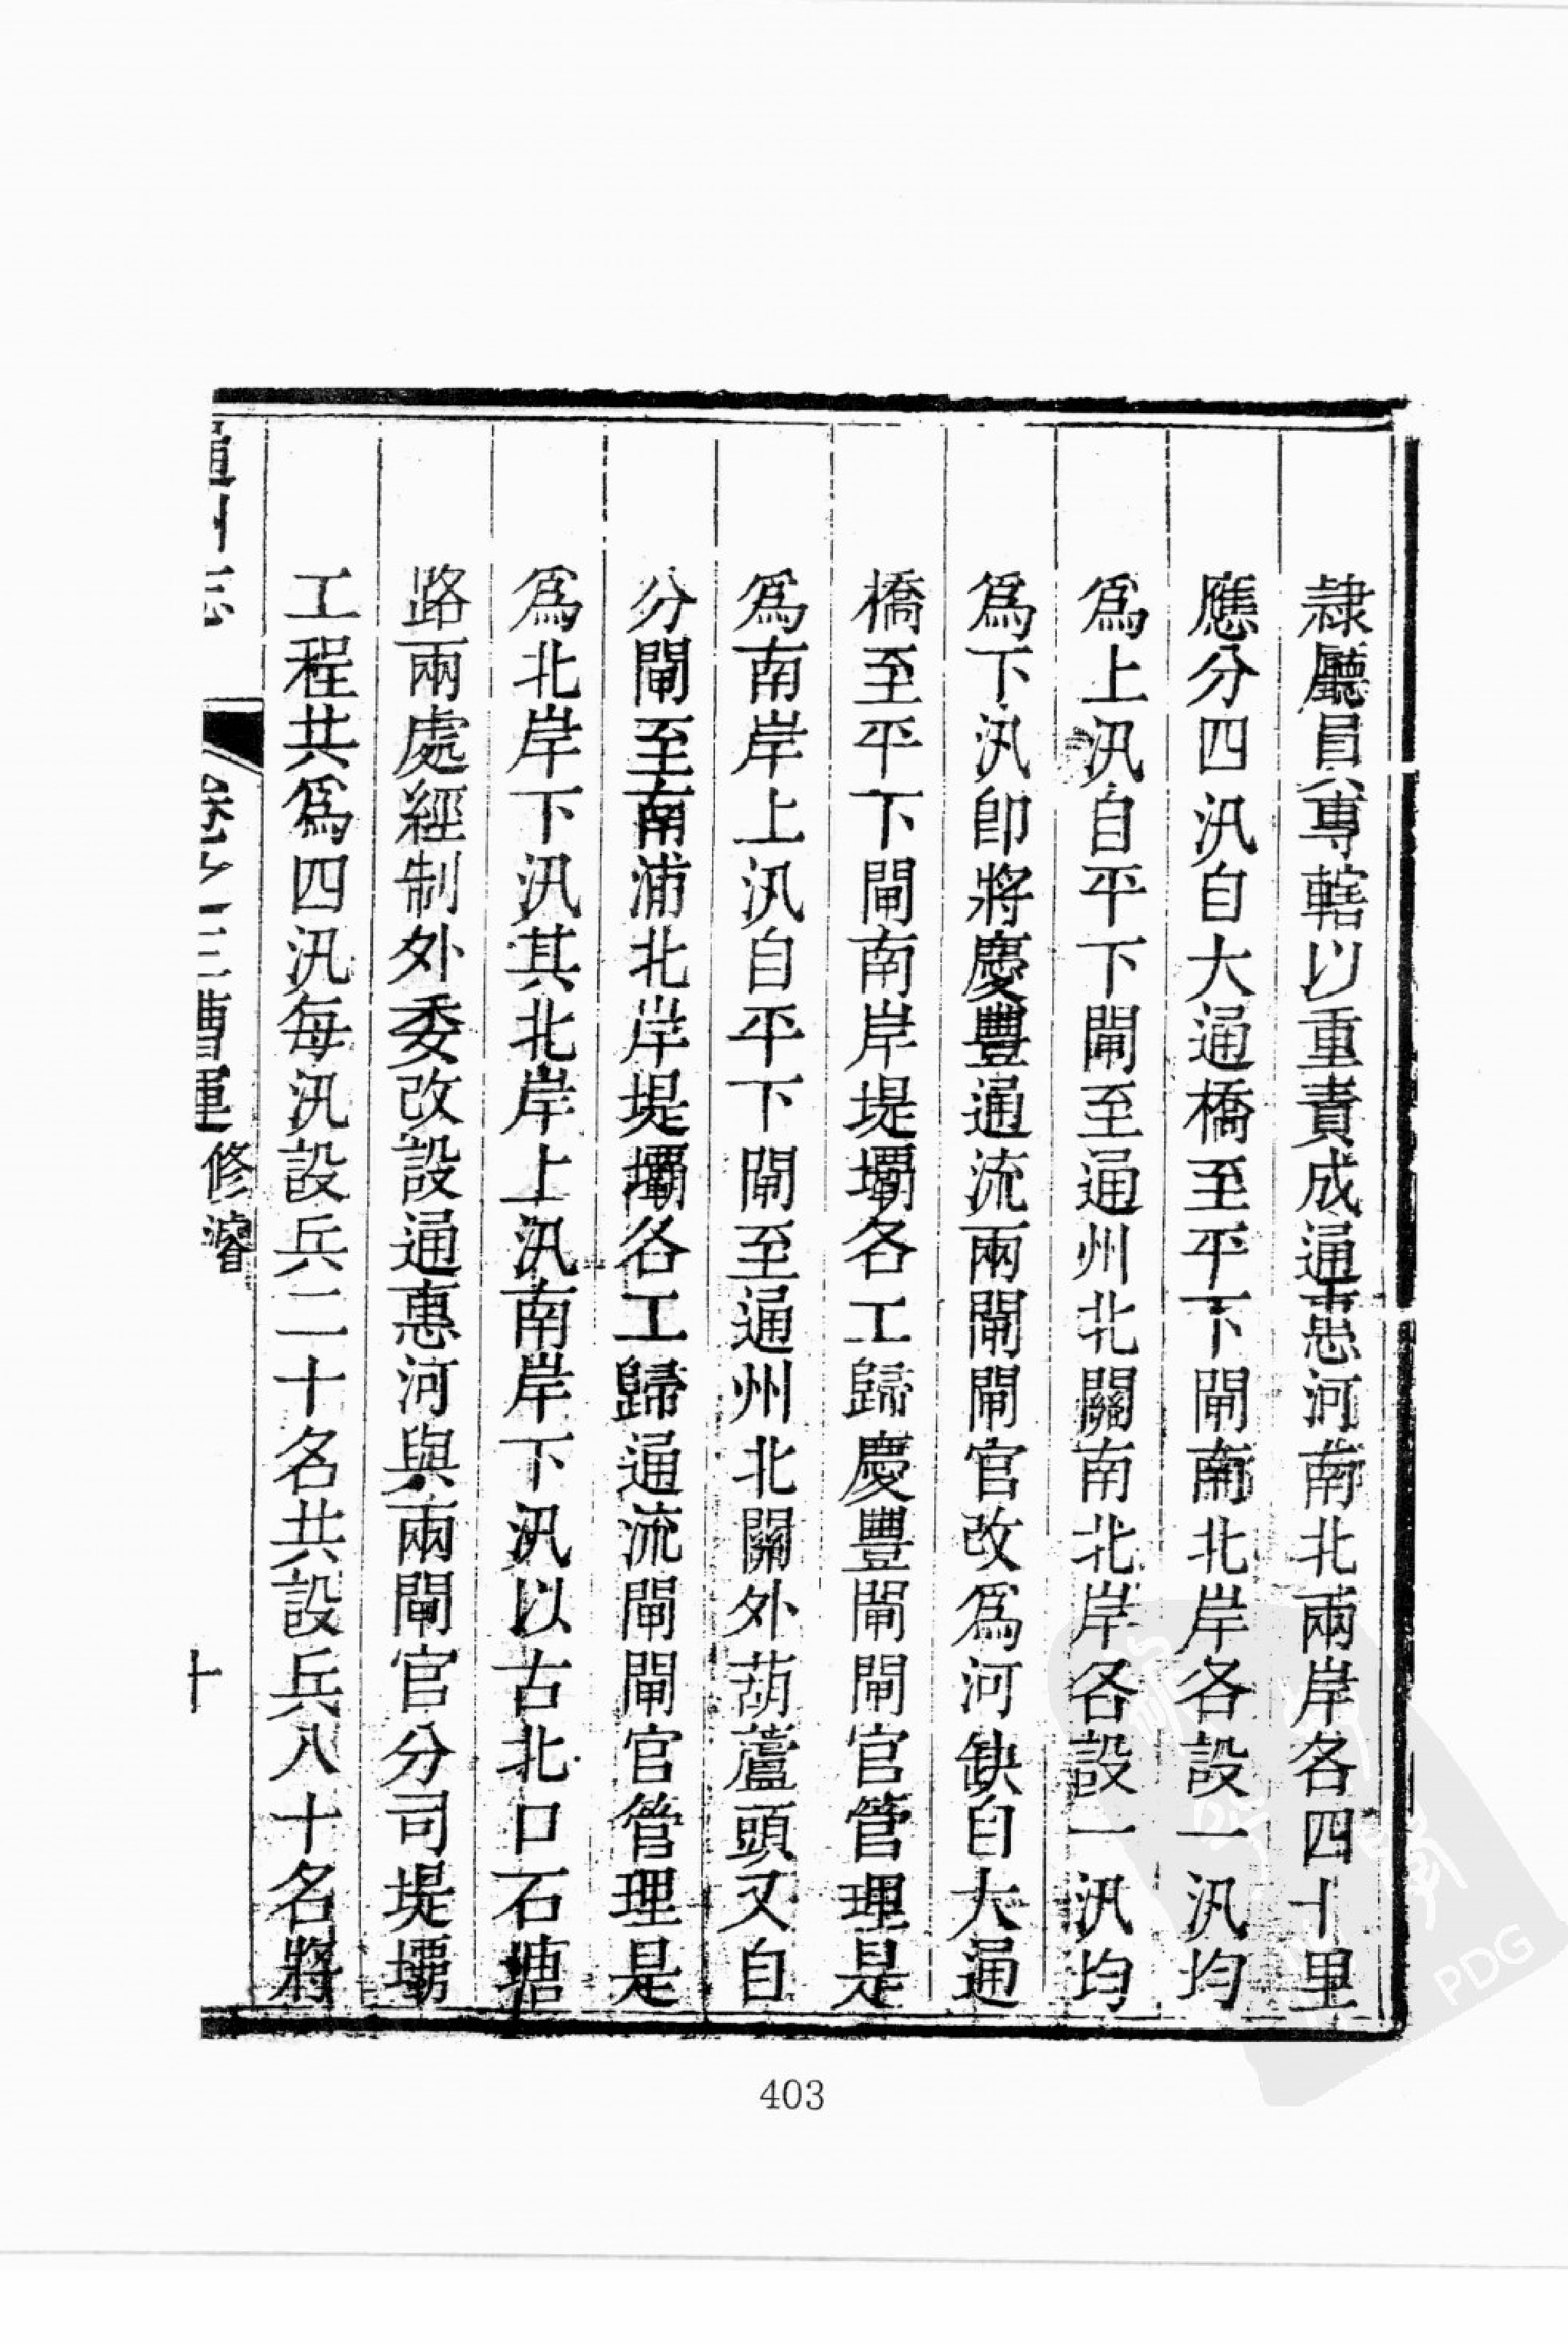 隸廳員專轄以重責成通惠河南北兩岸各四十里
應分四汛自大通橋至平下閘南北岸各設一汛均
爲上汛自平下閘至通州北關南北岸各設一汛均
爲下汛卽將慶豐通流兩閘閘官改爲河缺自大通
橋至平下閘南岸堤壩各工歸慶豐閘閘官管理是
爲南岸上汛自平下閘至通州北關外葫蘆頭又自
分閘至南浦北岸堤壩各工歸通流閘閘官管理是
爲北岸下汛其北岸上汛南岸下汛以古北口石塘
路兩處經制外委改設通惠河與兩閘官分司堤壩
工程共爲四汛每汛設兵二十名共設兵八十名將
通州志
卷之三漕運
修濬
十
403
PDG